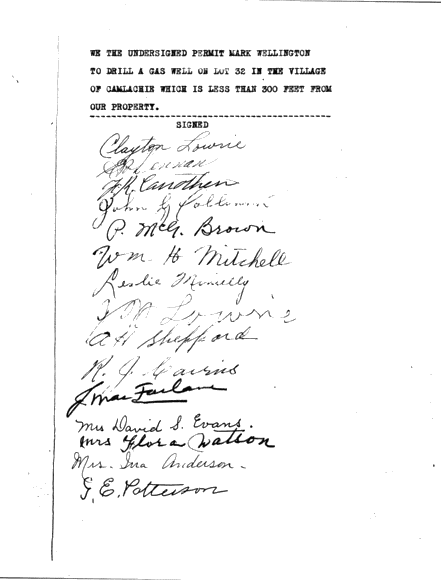 WE THE UNDERSIGNED PERMIT MARK WELLINGTON
TO DRILL A GAS WELL ON LOT 32 IN THE VILLAGE
OF CAMLACHIE WHICH IS LESS THAN 300 FEET FROM
OUR PROPERTY.
SIGNED
Clayton Lowrie
F.R. Carrothers
John G
P. McG. Brown
Wm. H Mitchell
Leslie
Lowrie
A H Sheppard
R. J. Cairns
J. MacFarlane
Mrs David S. Evans.
Mrs Flora Watson
Mrs. Ina Anderson.
G. E. Patterson